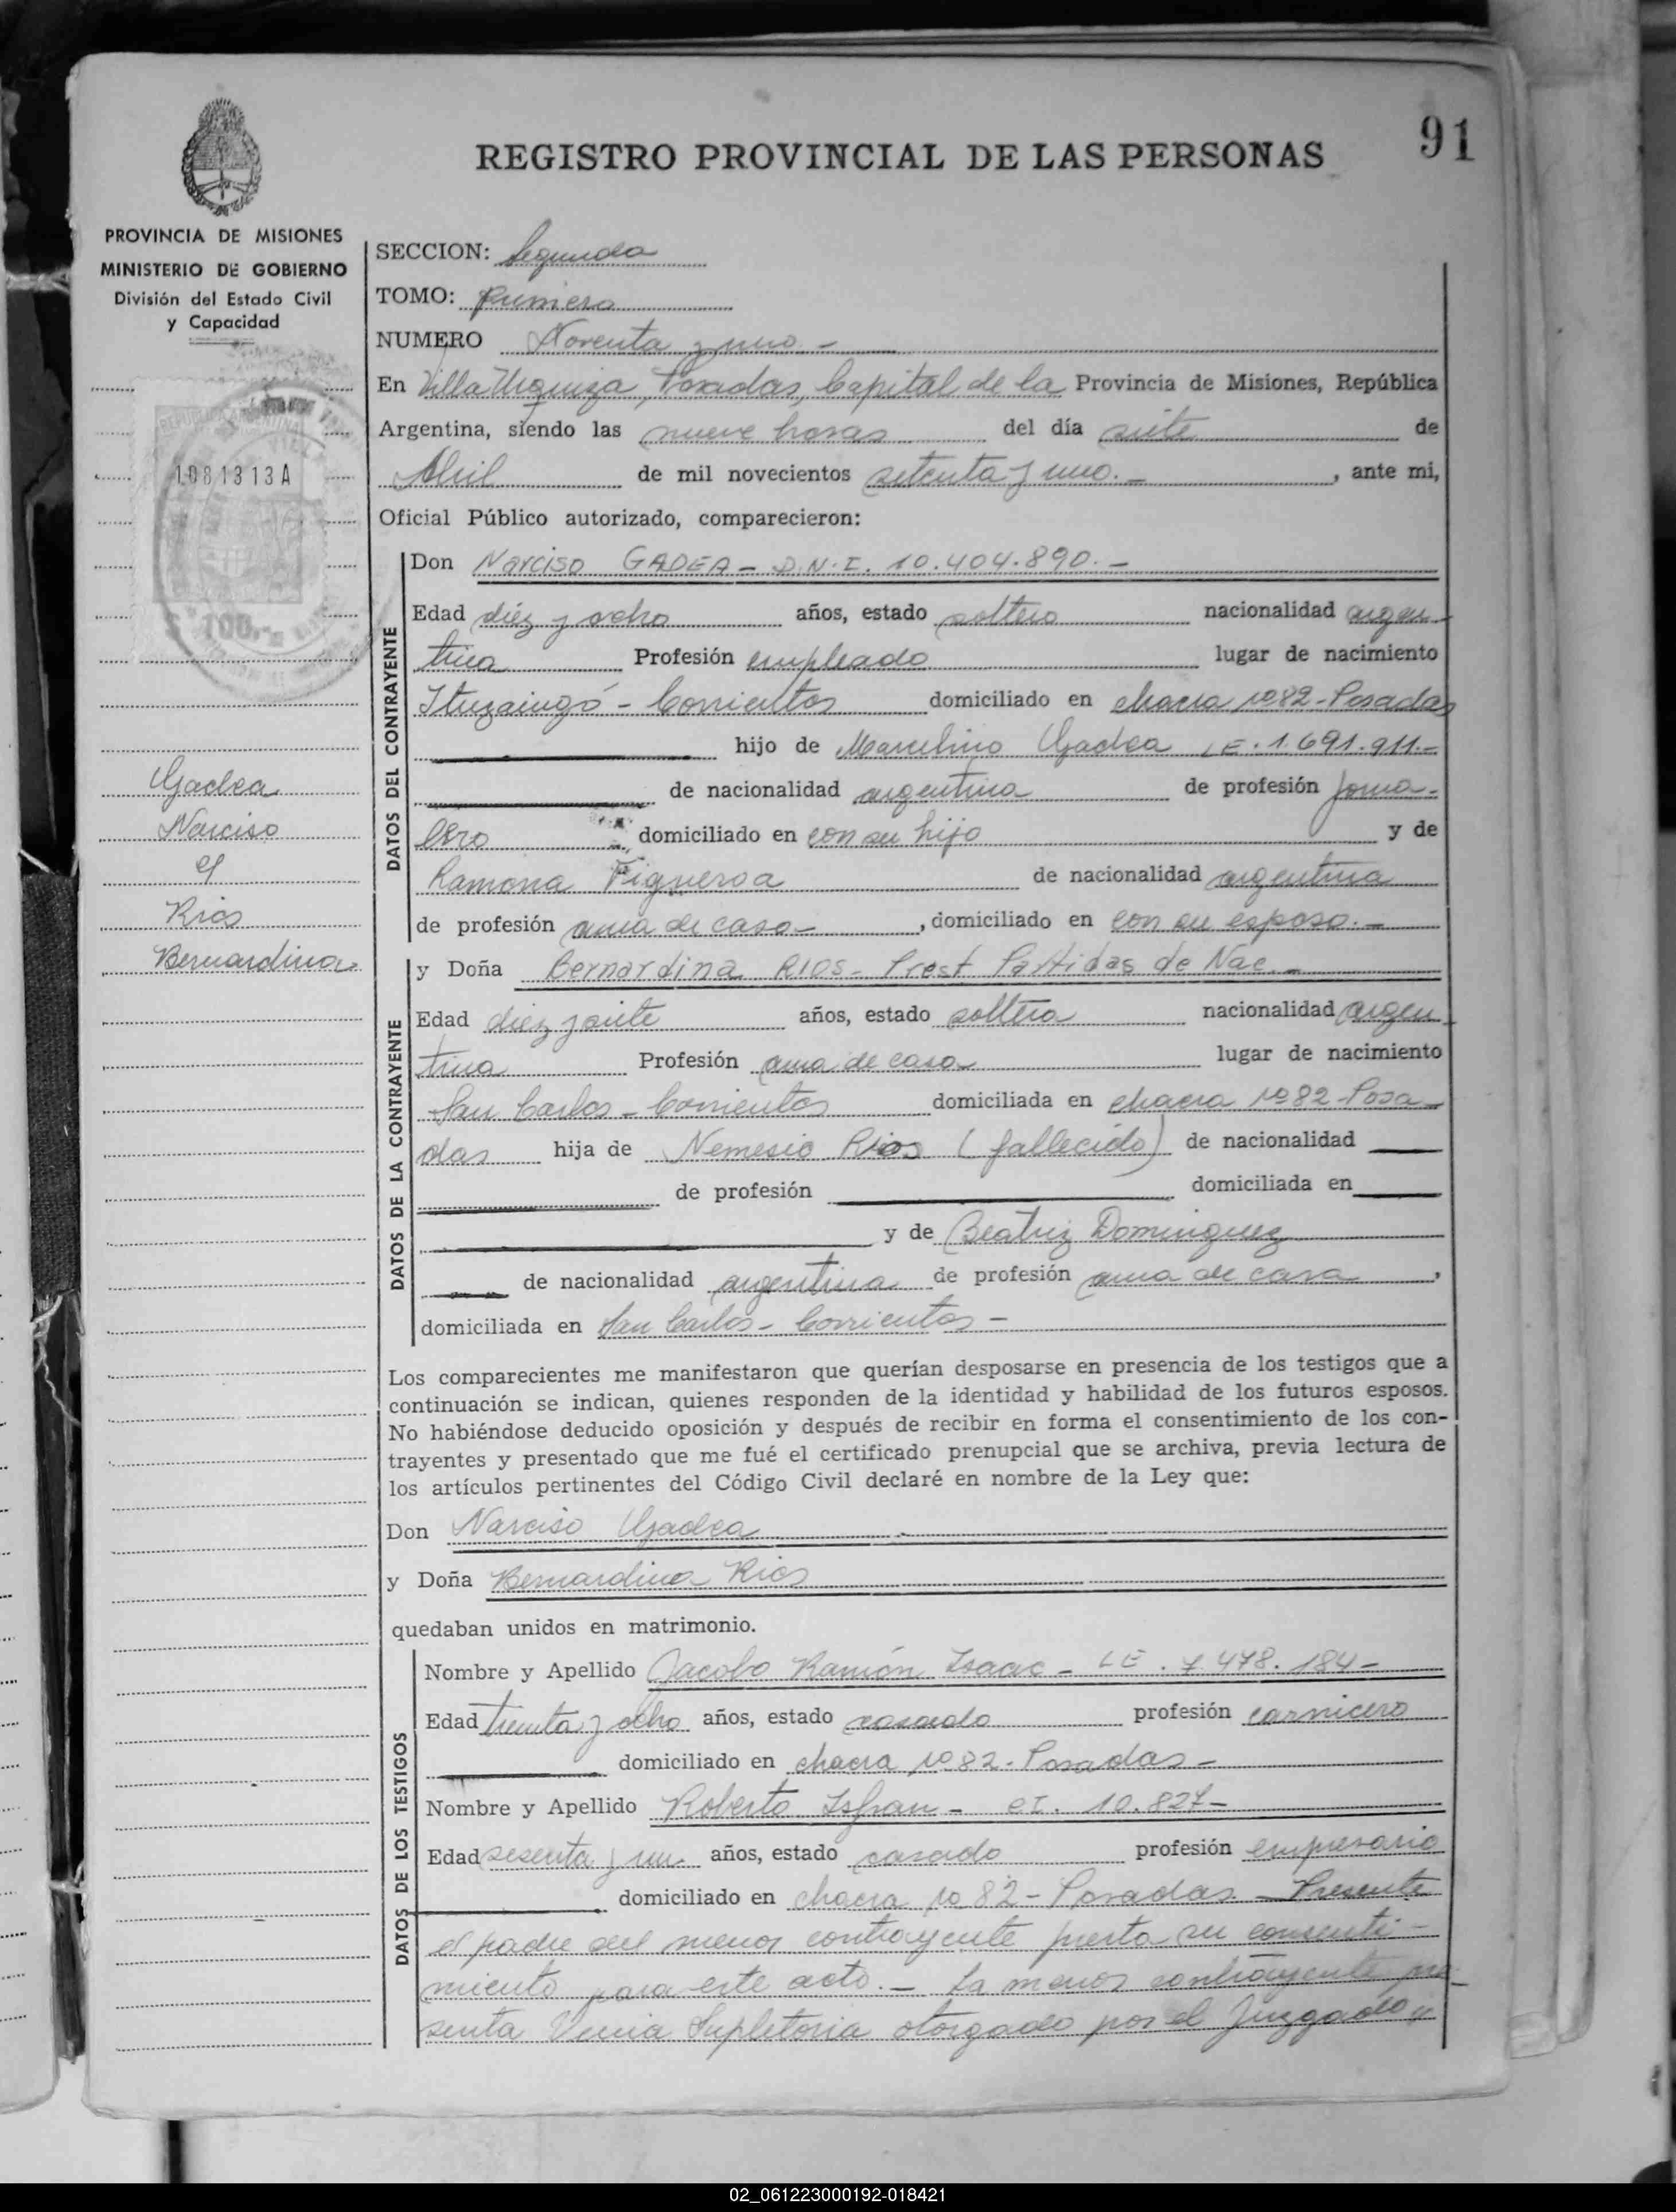 91
REGISTRO PROVINCIAL DE LAS PERSONAS
PROVINCIA DE MISIONES
MINISTERIO DE GOBIERNO
División del Estado Civil
y Capacidad
1081313A
Gadea
Narciso
c/
Rios
Bernardina
SECCION: Segunda
TOMO: Primero
NUMERO Noventa y uno -
En Villa Urquiza, Posadas, Capital de la Provincia de Misiones, República
Argentina, siendo las nueve horas del día siete de
Abril de mil novecientos setenta y uno. - , ante mi,
Oficial Público autorizado, comparecieron:
DATOS DEL CONTRAYENTE
Don Narciso GADEA - D.N.I. 10.404.890. -
Edad diez y ocho años, estado soltero nacionalidad argen-
tina Profesión empleado lugar de nacimiento
Ituzaingó - Corrientes domiciliado en chacra nº 82 - Posadas
hijo de Marcelino Gadea L.E. 1.691.911.-
de nacionalidad argentina de profesión Jorna-
lero domiciliado en con su hijo y de
Ramona Figueroa de nacionalidad argentina
de profesión ama de casa - , domiciliado en con su esposo. -
DATOS DE LA CONTRAYENTE
y Doña Bernardina RIOS - Prest Partidas de Nac. -
Edad diez y siete años, estado soltera nacionalidad argen
tina Profesión ama de casa lugar de nacimiento
San Carlos - Corrientes domiciliada en chacra nº 82 - Posa-
das hija de Nemesio Rios (fallecido) de nacionalidad
de profesión domiciliada en
y de Beatriz Dominguez
de nacionalidad argentina de profesión ama de casa ,
domiciliada en San Carlos - Corrientes -
Los comparecientes me manifestaron que querían desposarse en presencia de los testigos que a
continuación se indican, quienes responden de la identidad y habilidad de los futuros esposos.
No habiéndose deducido oposición y después de recibir en forma el consentimiento de los con-
trayentes y presentado que me fué el certificado prenupcial que se archiva, previa lectura de
los artículos pertinentes del Código Civil declaré en nombre de la Ley que:
Don Narciso Gadea
y Doña Bernardina Rios
quedaban unidos en matrimonio.
DATOS DE LOS TESTIGOS
Nombre y Apellido Jacobo Ramón Isaac - LE. 7.478.184-
Edad treinta y ocho años, estado casado profesión carnicero
domiciliado en chacra nº 82 - Posadas -
Nombre y Apellido Roberto Isfran - CI. 10.827-
Edad sesenta y un años, estado casado profesión empresario
domiciliado en chacra nº 82 - Posadas. - Presente
el padre del menor contrayente presta su consenti-
miento para este acto. - La menor contrayente pre-
senta Venia Supletoria otorgado por el Juzgado
02_061223000192-018421